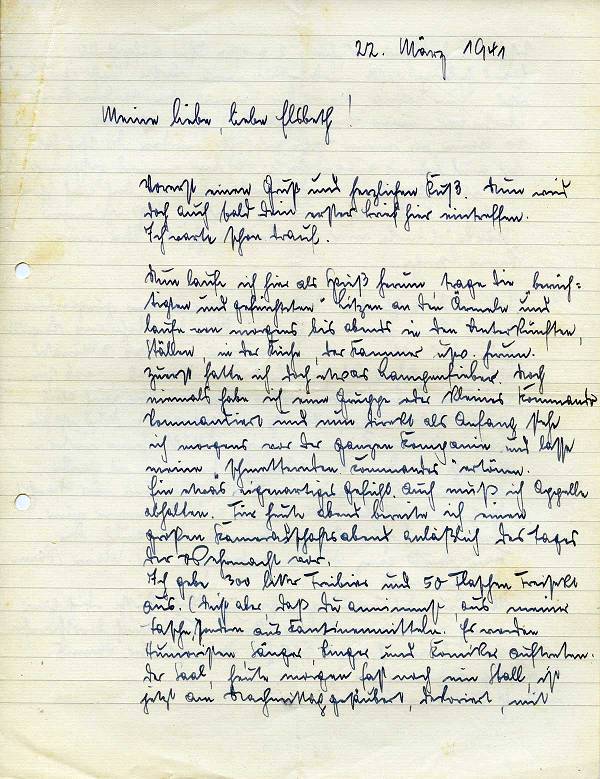 22. März 1941
Meine liebe, liebe Elsbeth!
Vorerst einen Gruß und herzlichen Kuß. Nun wird
doch auch bald Dein erster Brief hier eintreffen.
Ich warte schon drauf.
Nun laufe ich hier als Spieß herum, trage die "berüch=
tigten und gefürchteten" Litzen an den Ärmeln und
laufe von morgens bis abends in den Unterkünften,
Ställen, in der Küche, der Kammer usw. herum.
Zuerst hatte ich doch etwas Lampenfieber. Noch
niemals habe ich eine Gruppe oder kleines Kommando
kommandiert und nun direkt als Anfang stehe
ich morgens vor der ganzen Kompanie und lasse
meine "schmetternden Kommandos" ertönen.
Ein etwas eigenartiges Gefühl. Auch muß ich Appelle
abhalten. Für heute abend bereite ich einen
großen Kameradschaftsabend anläßlich des Tages
der Wehrmacht vor.
Ich gebe 300 Liter Freibier und 50 Flaschen Freisekt
aus. (Nicht aber, daß Du annimmst, aus meiner
Tasche, sondern aus Kantinenmitteln. Es werden
Humoristen, Sänger, Ringer und Komiker auftreten.
Der Saal, heute morgen fast noch ein Stall, ist
jetzt am Nachmittag gesäubert, dekoriert, mit